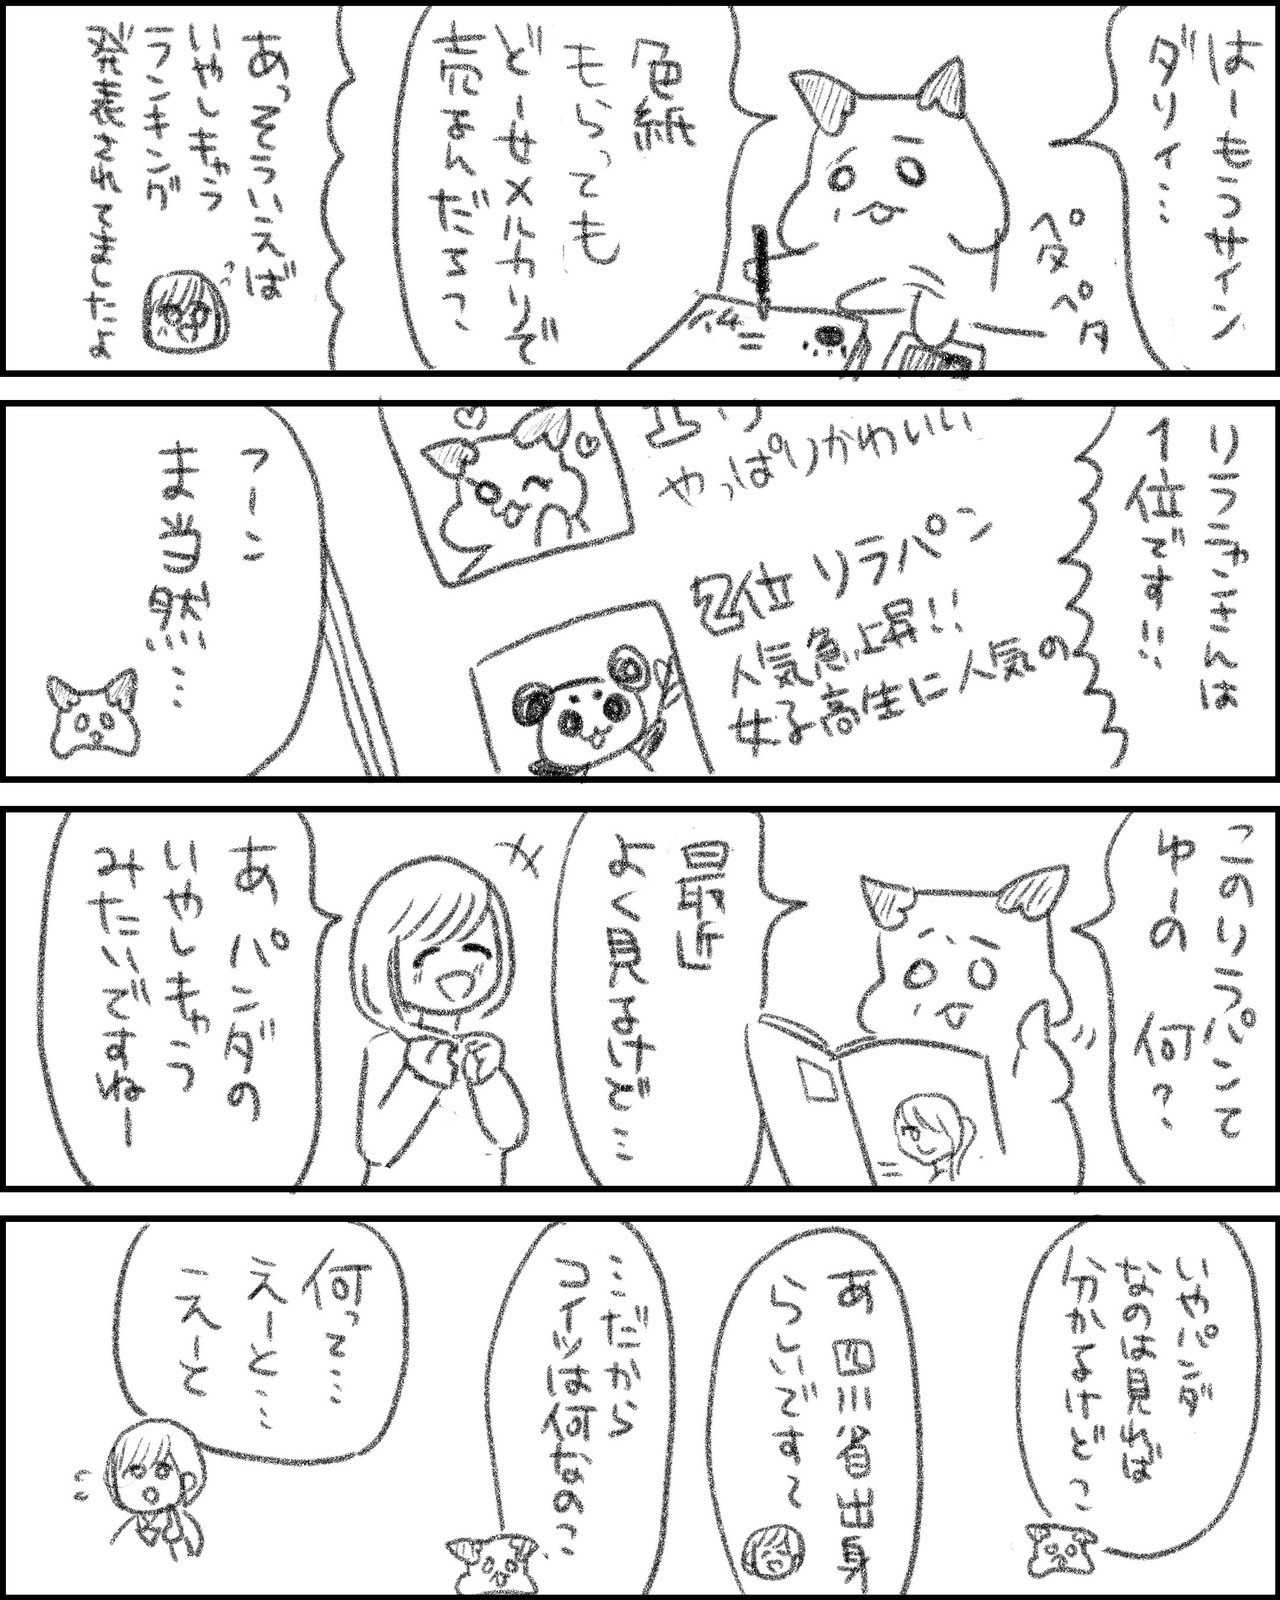 はーもうサイン
ダリィ…
ペタ
ペタ
色紙
もらっても
どーせメルカリで
売るんだろっ
あっそういえば
いやしきゃら
ランキング
発表されてましたよ
リラニャンさんは
1位です!!
やっぱりかわいい
2位 リラパン
人気急上昇!!
女子高生に人気の
ふーん
ま当然…
このリラパンて
ゆーの 何?
最近
よく見るけど…
あ パンダの
いやしきゃら
みたいですねー
いやパンダ
なのは見れば
分かるけどっ
あ 四川省出身
らしいです〜
…だから
コイツは何なのっ
何って…
えーと…
えーと